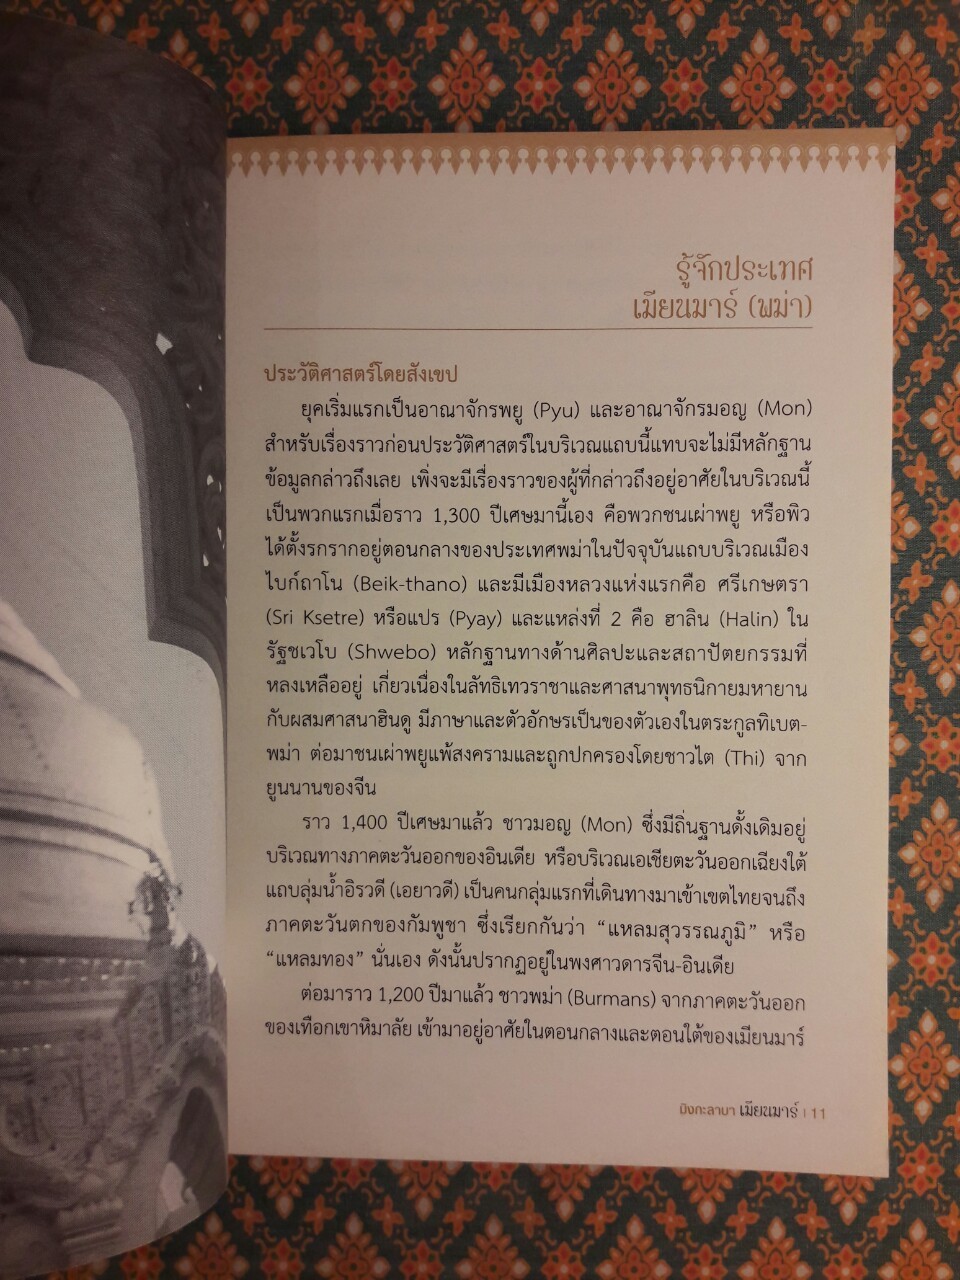 รู้จักประเทศ
เมียนมาร์ (พม่า)
ประวัติศาสตร์โดยสังเขป
ยุคเริ่มแรกเป็นอาณาจักรพยู (Pyu) และอาณาจักรมอญ (Mon)
สำหรับเรื่องราวก่อนประวัติศาสตร์ในบริเวณแถบนี้แทบจะไม่มีหลักฐาน
ข้อมูลกล่าวถึงเลย เพิ่งจะมีเรื่องราวของผู้ที่กล่าวถึงอยู่อาศัยในบริเวณนี้
เป็นพวกแรกเมื่อราว 1,300 ปีเศษมานี้เอง คือพวกชนเผ่าพยู หรือพิว
ได้ตั้งรกรากอยู่ตอนกลางของประเทศพม่าในปัจจุบันแถบบริเวณเมือง
ไบก์ถาโน (Beik-thano) และมีเมืองหลวงแห่งแรกคือ ศรีเกษตรา
(Sri Ksetre) หรือแปร (Pyay) และแหล่งที่ 2 คือ ฮาลิน (Halin) ใน
รัฐชเวโบ (Shwebo) หลักฐานทางด้านศิลปะและสถาปัตยกรรมที่
หลงเหลืออยู่ เกี่ยวเนื่องในลัทธิเทวราชาและศาสนาพุทธนิกายมหายาน
กับผสมศาสนาฮินดู มีภาษาและตัวอักษรเป็นของตัวเองในตระกูลทิเบต-
พม่า ต่อมาชนเผ่าพยูแพ้สงครามและถูกปกครองโดยชาวไต (Thi) จาก
ยูนนานของจีน
ราว 1,400 ปีเศษมาแล้ว ชาวมอญ (Mon) ซึ่งมีถิ่นฐานดั้งเดิมอยู่
บริเวณทางภาคตะวันออกของอินเดีย หรือบริเวณเอเชียตะวันออกเฉียงใต้
แถบลุ่มน้ำอิรวดี (เอยาวดี) เป็นคนกลุ่มแรกที่เดินทางมาเข้าเขตไทยจนถึง
ภาคตะวันตกของกัมพูชา ซึ่งเรียกกันว่า “แหลมสุวรรณภูมิ” หรือ
“แหลมทอง” นั่นเอง ดังนั้นปรากฏอยู่ในพงศาวดารจีน-อินเดีย
ต่อมาราว 1,200 ปีมาแล้ว ชาวพม่า (Burmans) จากภาคตะวันออก
ของเทือกเขาหิมาลัย เข้ามาอยู่อาศัยในตอนกลางและตอนใต้ของเมียนมาร์
มิงกะลาบา เมียนมาร์ | 11